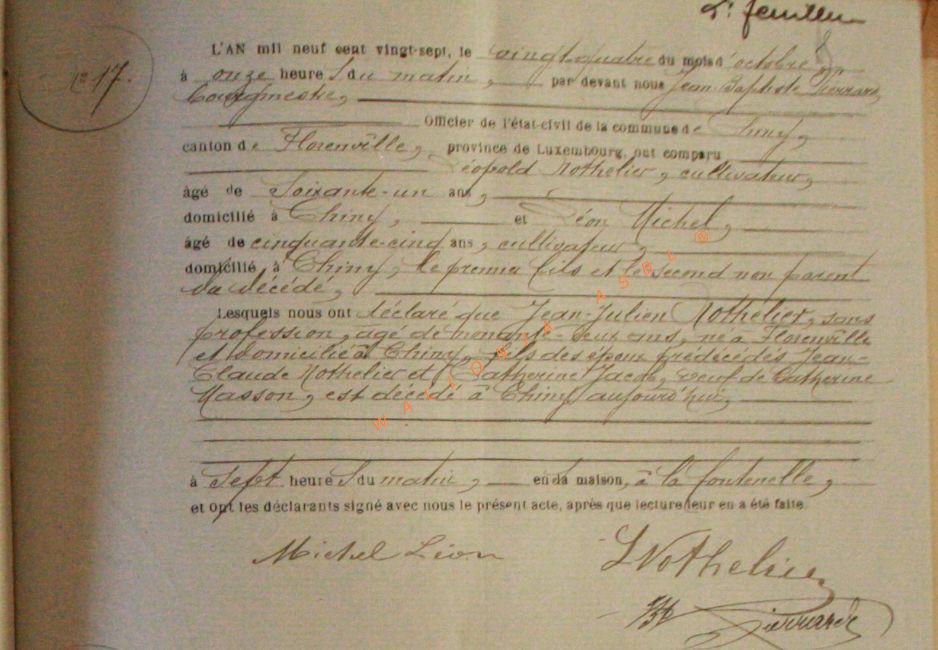 2e feuillet
8
No 17.
L'AN mil neuf cent vingt-sept, le vingt-quatre du mois d'octobre
à onze heures du matin, par devant nous Jean Baptiste Pierrard,
bourgmestre,
Officier de l'état-civil de la commune de Chiny,
canton de Florenville, province de Luxembourg, ont comparu
Léopold Nothelier, cultivateur,
âgé de Soixante-un ans,
domicilié à Chiny, et Léon Michel,
âgé de cinquante-cinq ans, cultivateur,
domicilié à Chiny, le premier fils et le second non parent
du décédé,
Lesquels nous ont déclaré que Jean-Julien Nothelier, sans
profession, âgé de nonante-deux ans, né à Florenville
et domicilié à Chiny, fils des époux prédécédés Jean-
Claude Nothelier et Catherine Jacob, veuf de Catherine
Masson, est décédé à Chiny aujourd'hui,
à sept heures du matin, en sa maison, à la fontenelle,
et ont les déclarants signé avec nous le présent acte, après que lecture leur en a été faite.
Michel Léon
L Nothelier
JBt Pierrard
WALLONIA ASBL ®